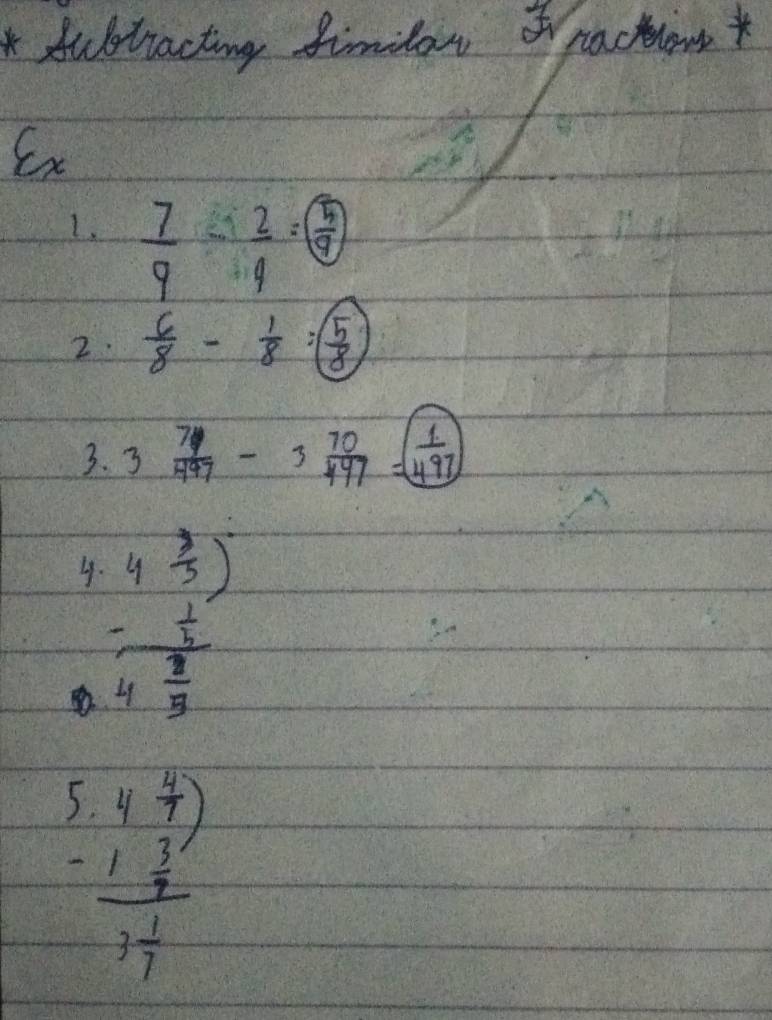 * Subtracting Similar Fractions *
Ex
1. 7/9 - 2/9 = 5/9
2. 6/8 - 1/8 = 5/8
3. 3 71/497 - 3 70/497 = 1/497
4. 4 3/5 )
- 1/5
4 2/5
5. 4 4/7 )
- 1 3/7
3 1/7